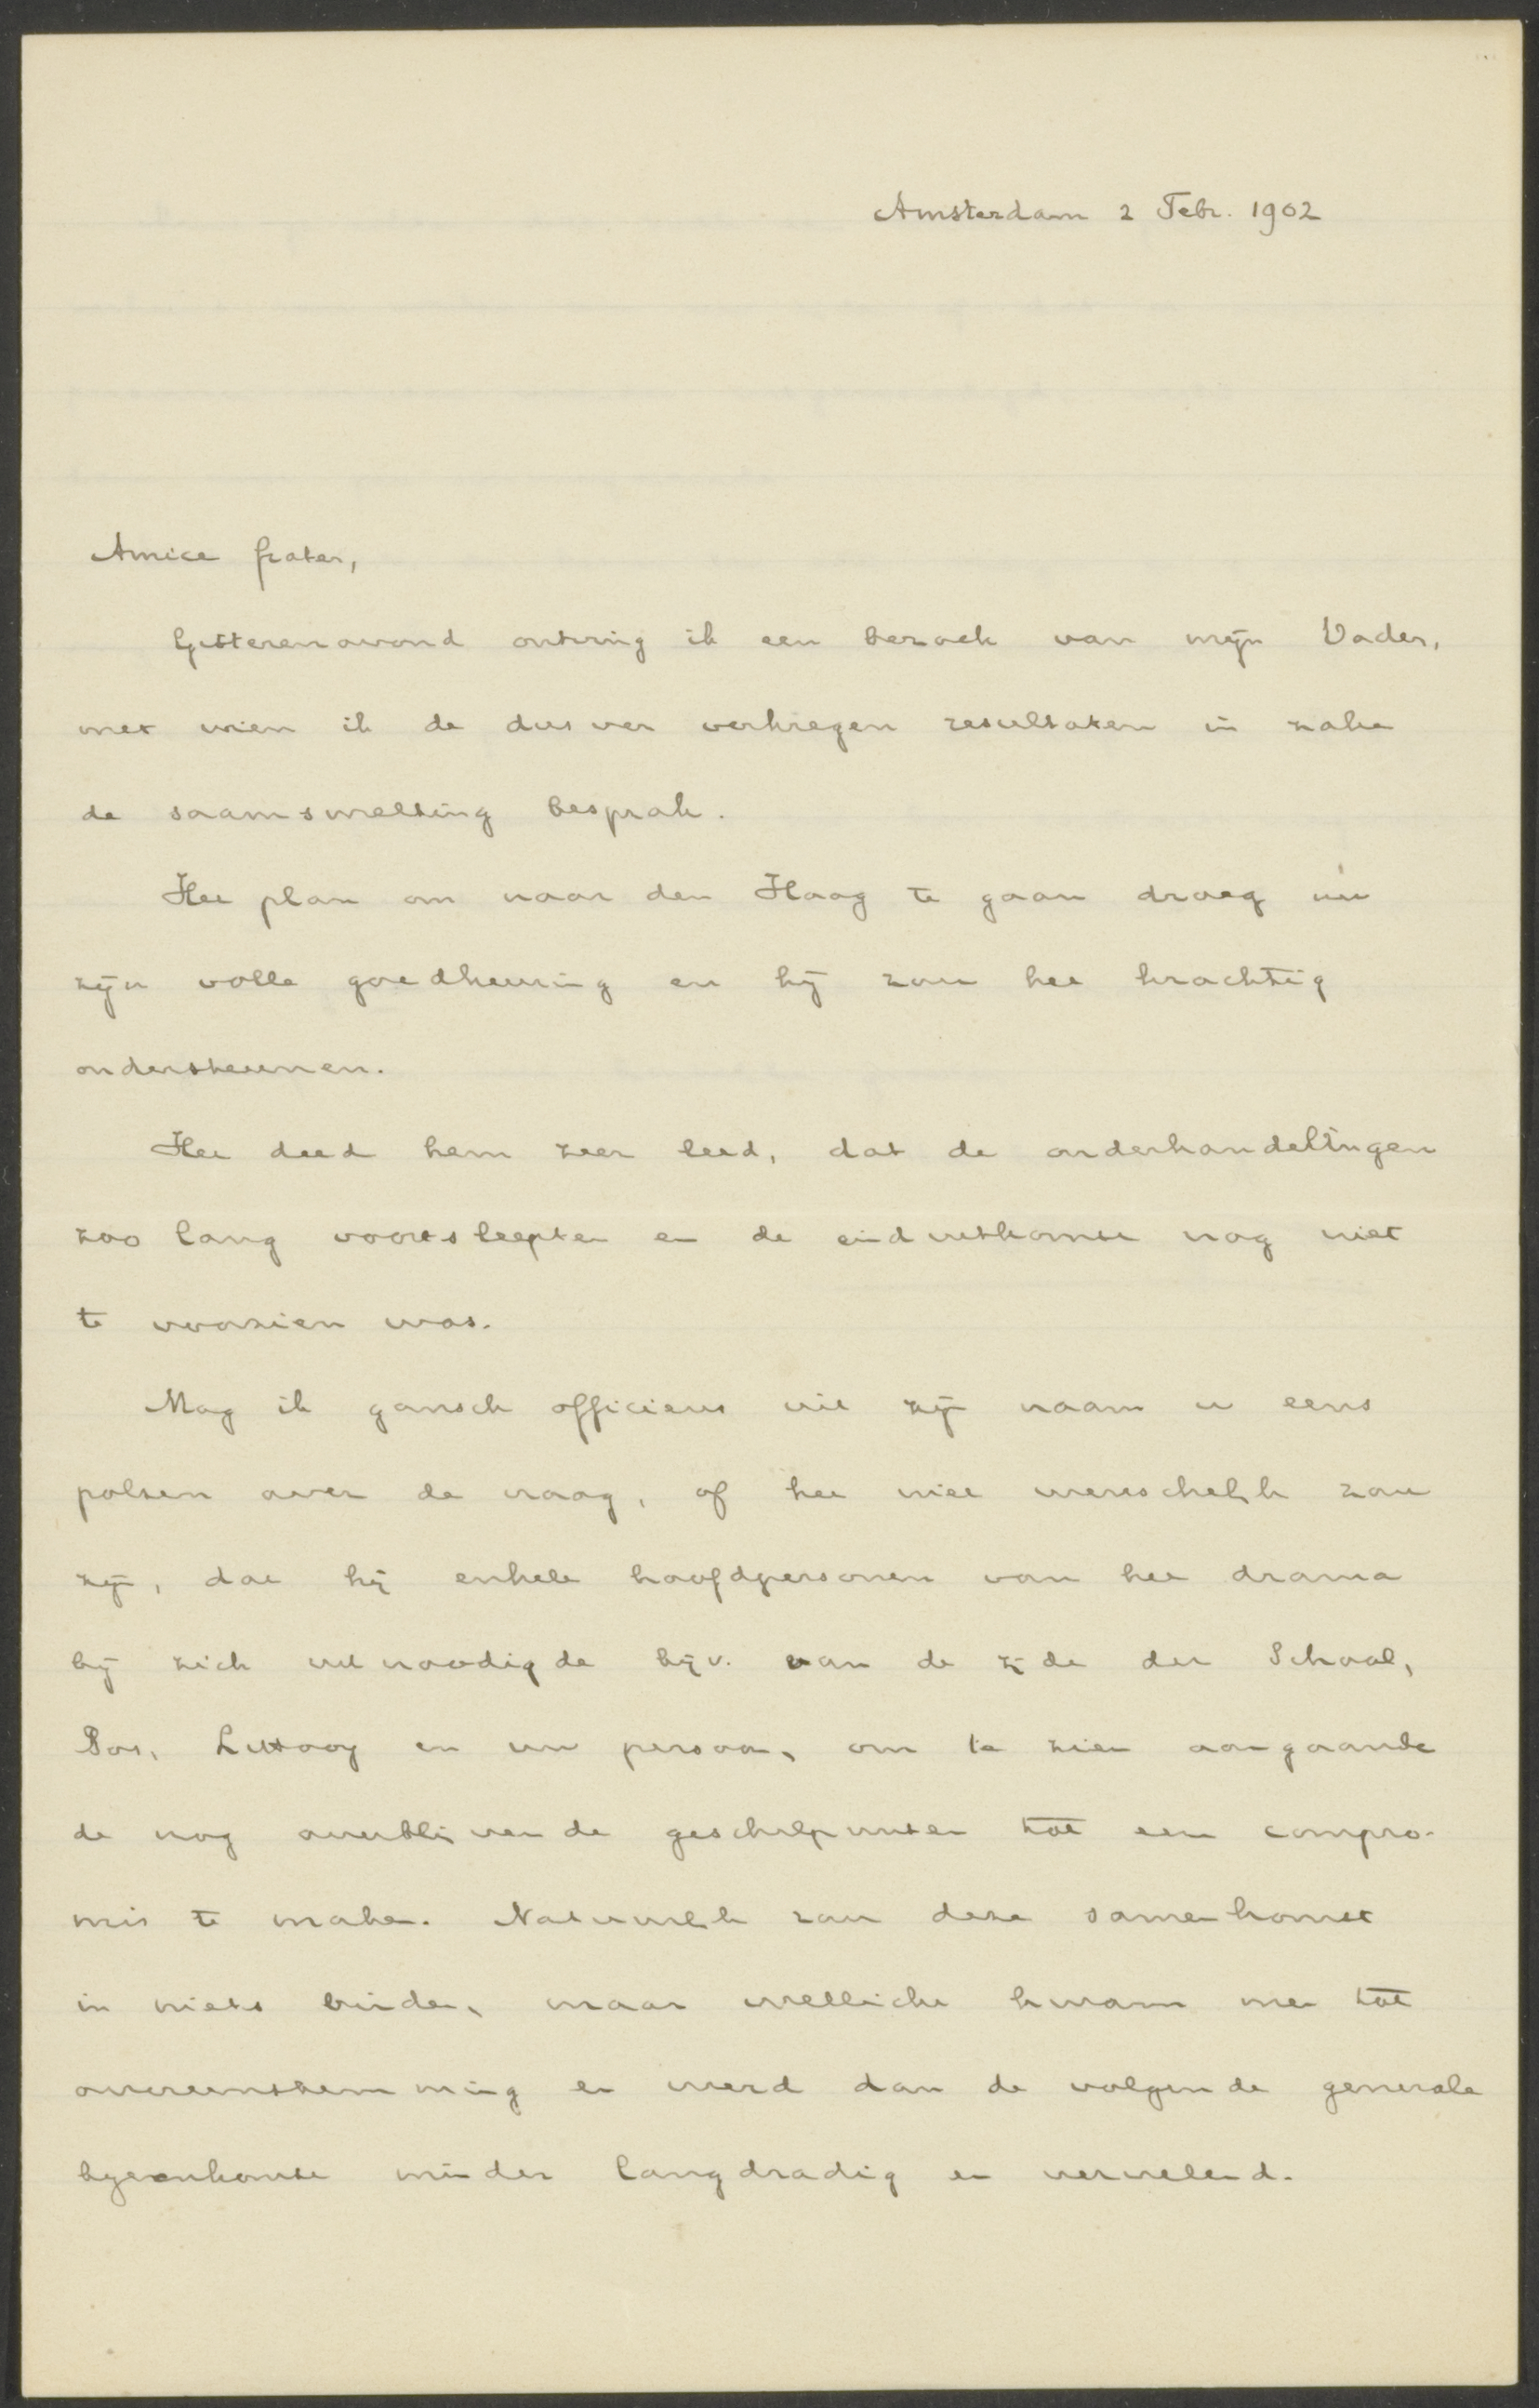 Amsterdam 2 Febr. 1902
Amice frater,
Gisterenavond ontving ik een bezoek van mijn Vader,
met wien ik de dusver verkregen resultaten in zake
de saamsmelting besprak.
Het plan om naar den Haag te gaan droeg nu
zijn volle goedkeuring en hij zou het krachtig
ondersteunen.
Het deed hem zeer leed, dat de onderhandelingen
zoo lang voortsleepten en de einduitkomst nog niet
te voorzien was.
Mag ik gansch officieus uit zijn naam u eens
polsen over de vraag, of het niet wenschelijk zou
zijn, dat hij enkele hoofdpersonen van het drama
bij zich uitnoodigde bijv. van de zijde der School,
Bos, Littooy en uw persoon, om te zien aangaande
de nog overblijvende geschilpunten tot een compro-
mis te maken. Natuurlijk zou deze samenkomst
in niets binden, maar wellicht kwam men tot
overeenstemming en werd dan de volgende generale
bijeenkomst minder langdradig en vervelend.